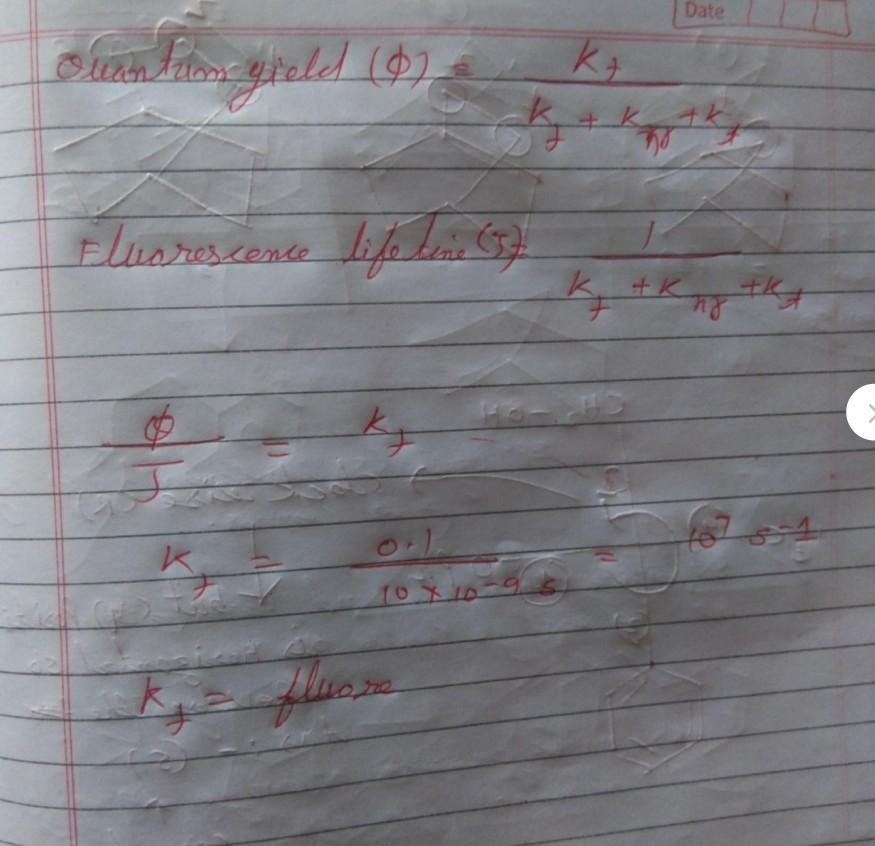 Date
Quantum yield (Φ) = K_f / K_f + K_nr + K_f
Fluorescence life time (τ) = 1 / K_f + K_nr + K_f
Φ / τ = K_f
K_f = 0.1 / 10 × 10^-9 s = 10^7 s^-1
K_f = fluore